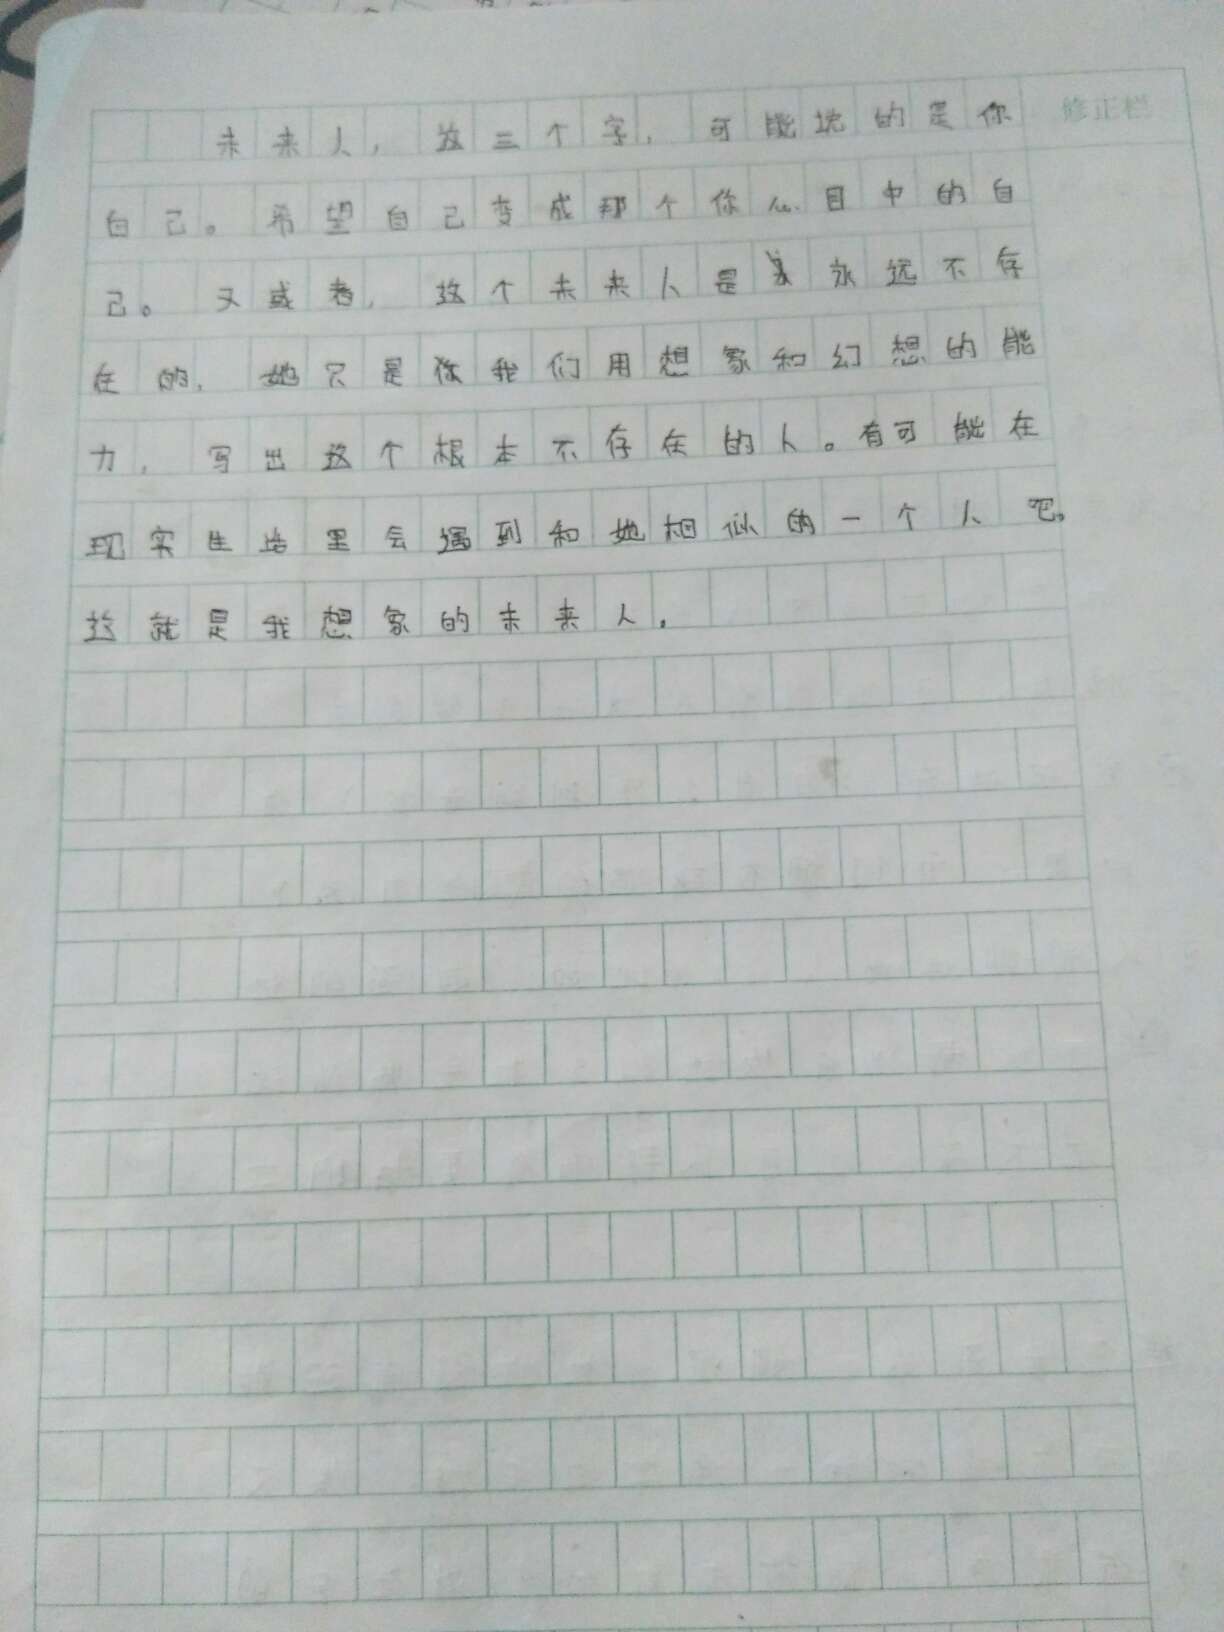 未来人，这三个字，可能说的是你 修正栏
自己。希望自己变成那个你心目中的自
己。又或者，这个未来人是永远不存
在的，她只是你我们用想象和幻想的能
力，写出这个根本不存在的人。有可能在
现实生活里会遇到和她相似的一个人吧。
这就是我想象的未来人。